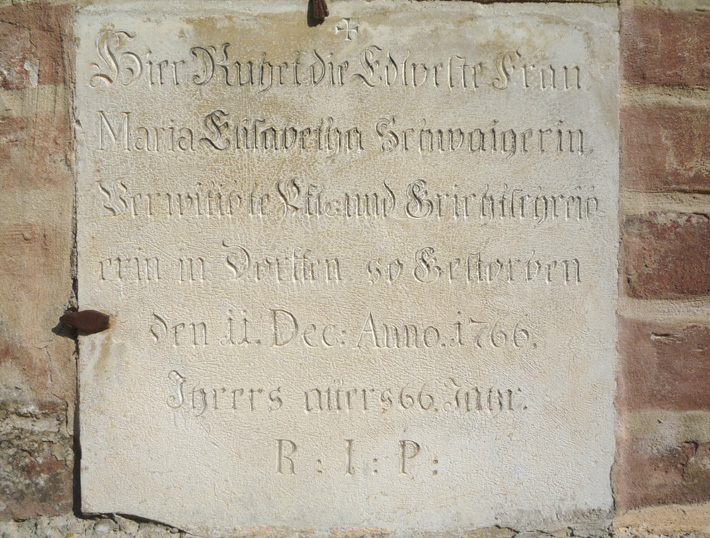 Hier Ruhet die Edlveste Frau
Maria Elisabetha Schwaigerin
Verwittibte und Grichtschreib-
erin in Dorffen so Gestorben
den 11. Dec: Anno. 1766.
Ihrers alters 66. Jahr.
R : I : P :